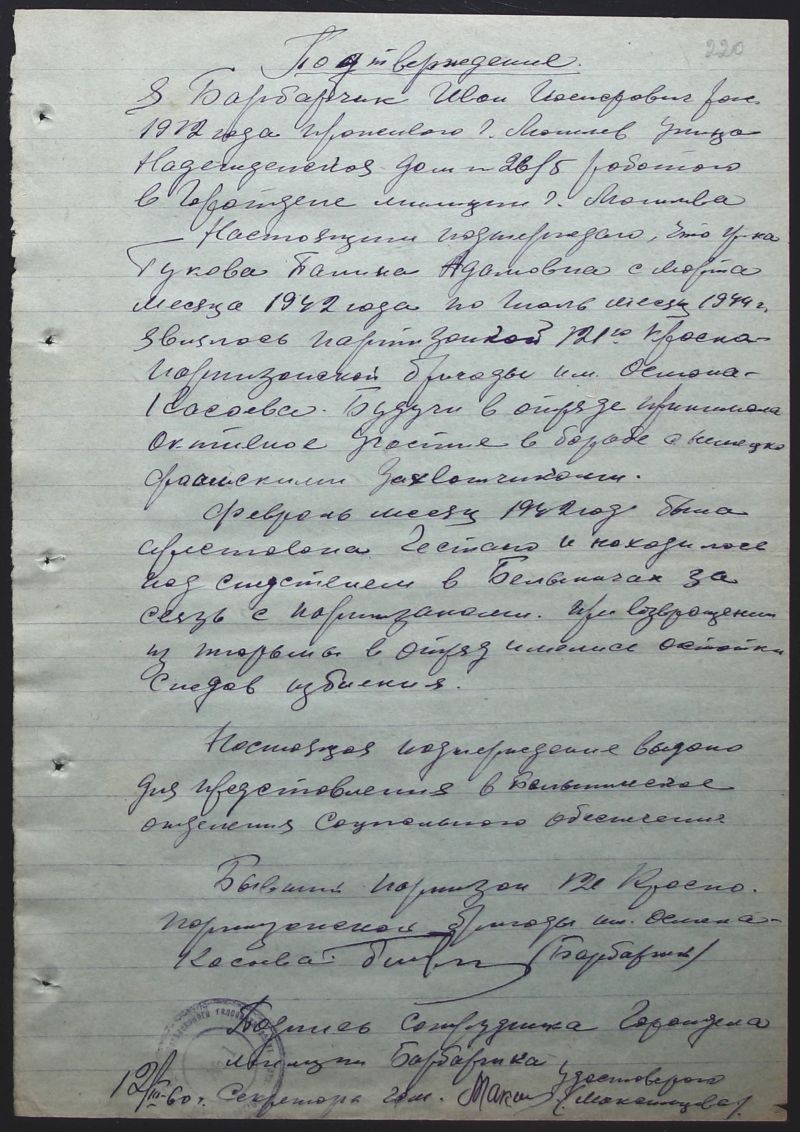 220
Подтверждение.
Я Барбарчик Иван Иосифович рож.
1912 года проживаю г. Могилев улица
Надежденская дом № 26/5 работаю
в Горотделе милиции г. Могилева
Настоящим подтверждаю, что гр-ка
Гукова Галина Адамовна с марта
месяца 1942 года по июль месяц 1944 г.
являлась партизанкой 121го Красно-
партизанской бригады им. Османа-
Касаева. Будучи в отряде принимала
активное участие в борьбе с немецко
фашискими захватчиками.
Февраль месяц 1942 год была
арестована Гестапо и находилось
под следствием в Белыничах за
связь с партизанами. При возвращении
из тюрьмы в отряд имелись остатки
следов избиения.
Настоящая подтверждение выдано
для представления в Белыничское
отделения социального обеспечения
Бывший партизан 121 Красно-
партизанской бригады им. Османа-
Касаева. (Барбарчик)
Подпись сотрудника Горотдела
милиции Барбарчика удостоверяю
12/III-60 г. Секретарь гом.